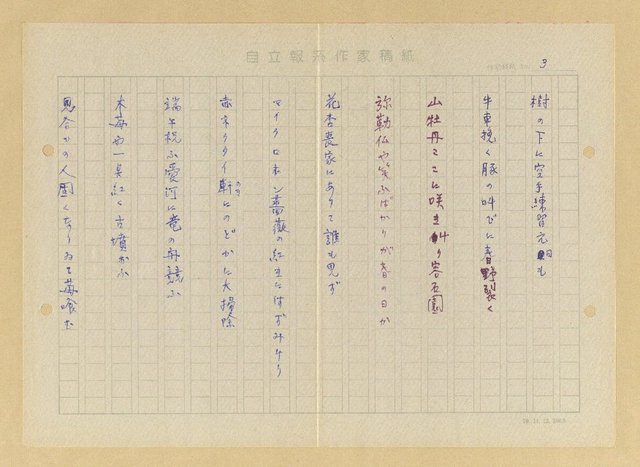 自立報系作家稿紙
3
樹の下に空手練習元旦も
牛車挽く豚の叫びに春野裂く
山牡丹ここに咲き 寄石園
弥勒仏や笑ふばかりが春の日か
花杏喪家にありて誰も見ず
マイクロホン薔薇の紅 にはずみけり
赤ネクタイ軒にのどかに大掃除
端午祝ふ愛河に竜の舟競ふ
木苺や一臭紅く古墳かふ
見合かの人固くなりゐて苺喰む